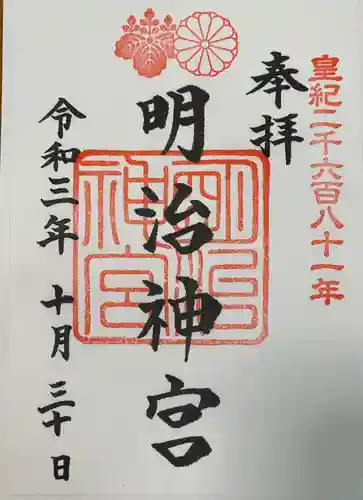 皇紀二千六百八十一年
奉拝
明治神宮
明治神宮
令和三年 十月 三十日